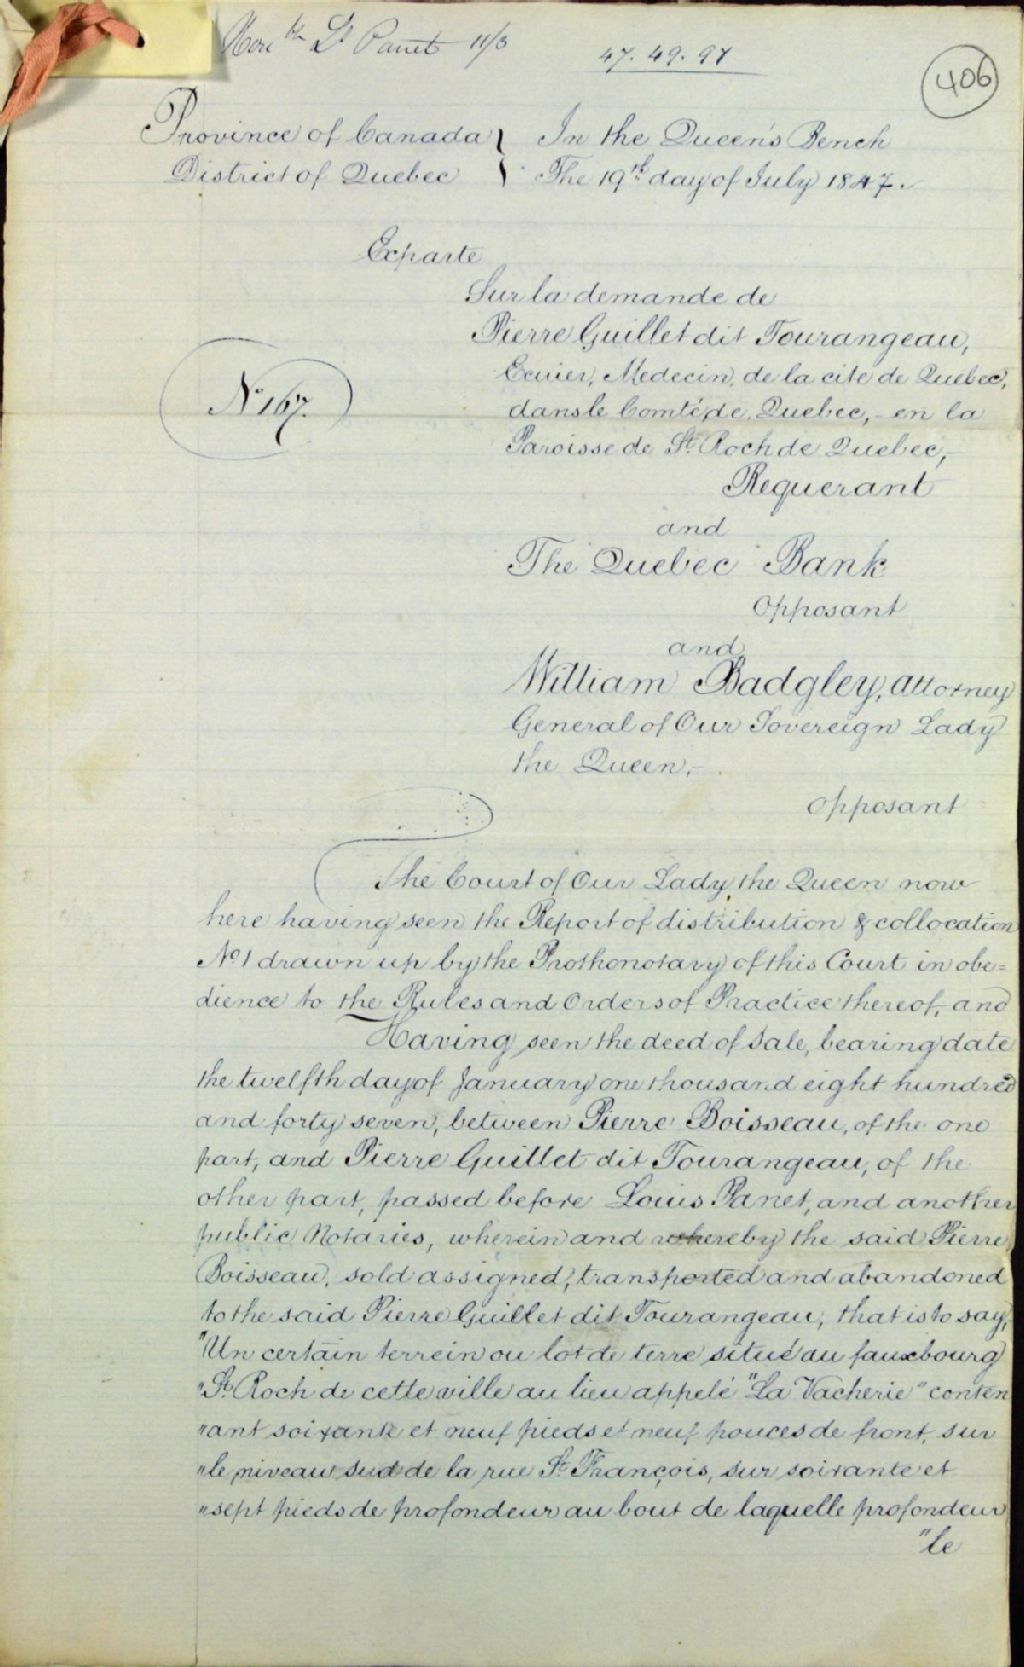 Honble Ls Panet 11/3
47. 49. 97
406
Province of Canada } In the Queen's Bench
District of Quebec } The 19th day of July 1847.
Exparte
Sur la demande de
Pierre Guillet dit Tourangeau,
Ecuier, Medecin, de la cité de Quebec,
No 167.
dans le Comté de Quebec, en la
Paroisse de St Roch de Quebec,
Requerant
and
The Quebec Bank
Opposant
and
William Badgley, Attorney
General of Our Sovereign Lady
the Queen.
Opposant
The Court of Our Lady the Queen now
here having seen the Report of distribution & collocation
No 1 drawn up by the Prothonotary of this Court in obe=
dience to the Rules and Orders of Practice thereof, and
Having seen the deed of Sale, bearing date
the twelfth day of January one thousand eight hundred
and forty seven, between Pierre Boisseau, of the one
part, and Pierre Guillet dit Tourangeau, of the
other part, passed before Louis Panet, and another
public Notaries, wherein and whereby the said Pierre
Boisseau, sold assigned, transported and abandoned
to the said Pierre Guillet dit Tourangeau, that is to say,
"Un certain terrein ou lot de terre situé au fauxbourg
"St Roch de cette ville au lieu appelé "La Vacherie" conten
"ant soixante et neuf pieds et neuf pouces de front, sur
"le niveau sud de la rue St François, sur soixante et
"sept pieds de profondeur au bout de laquelle profondeur
"le